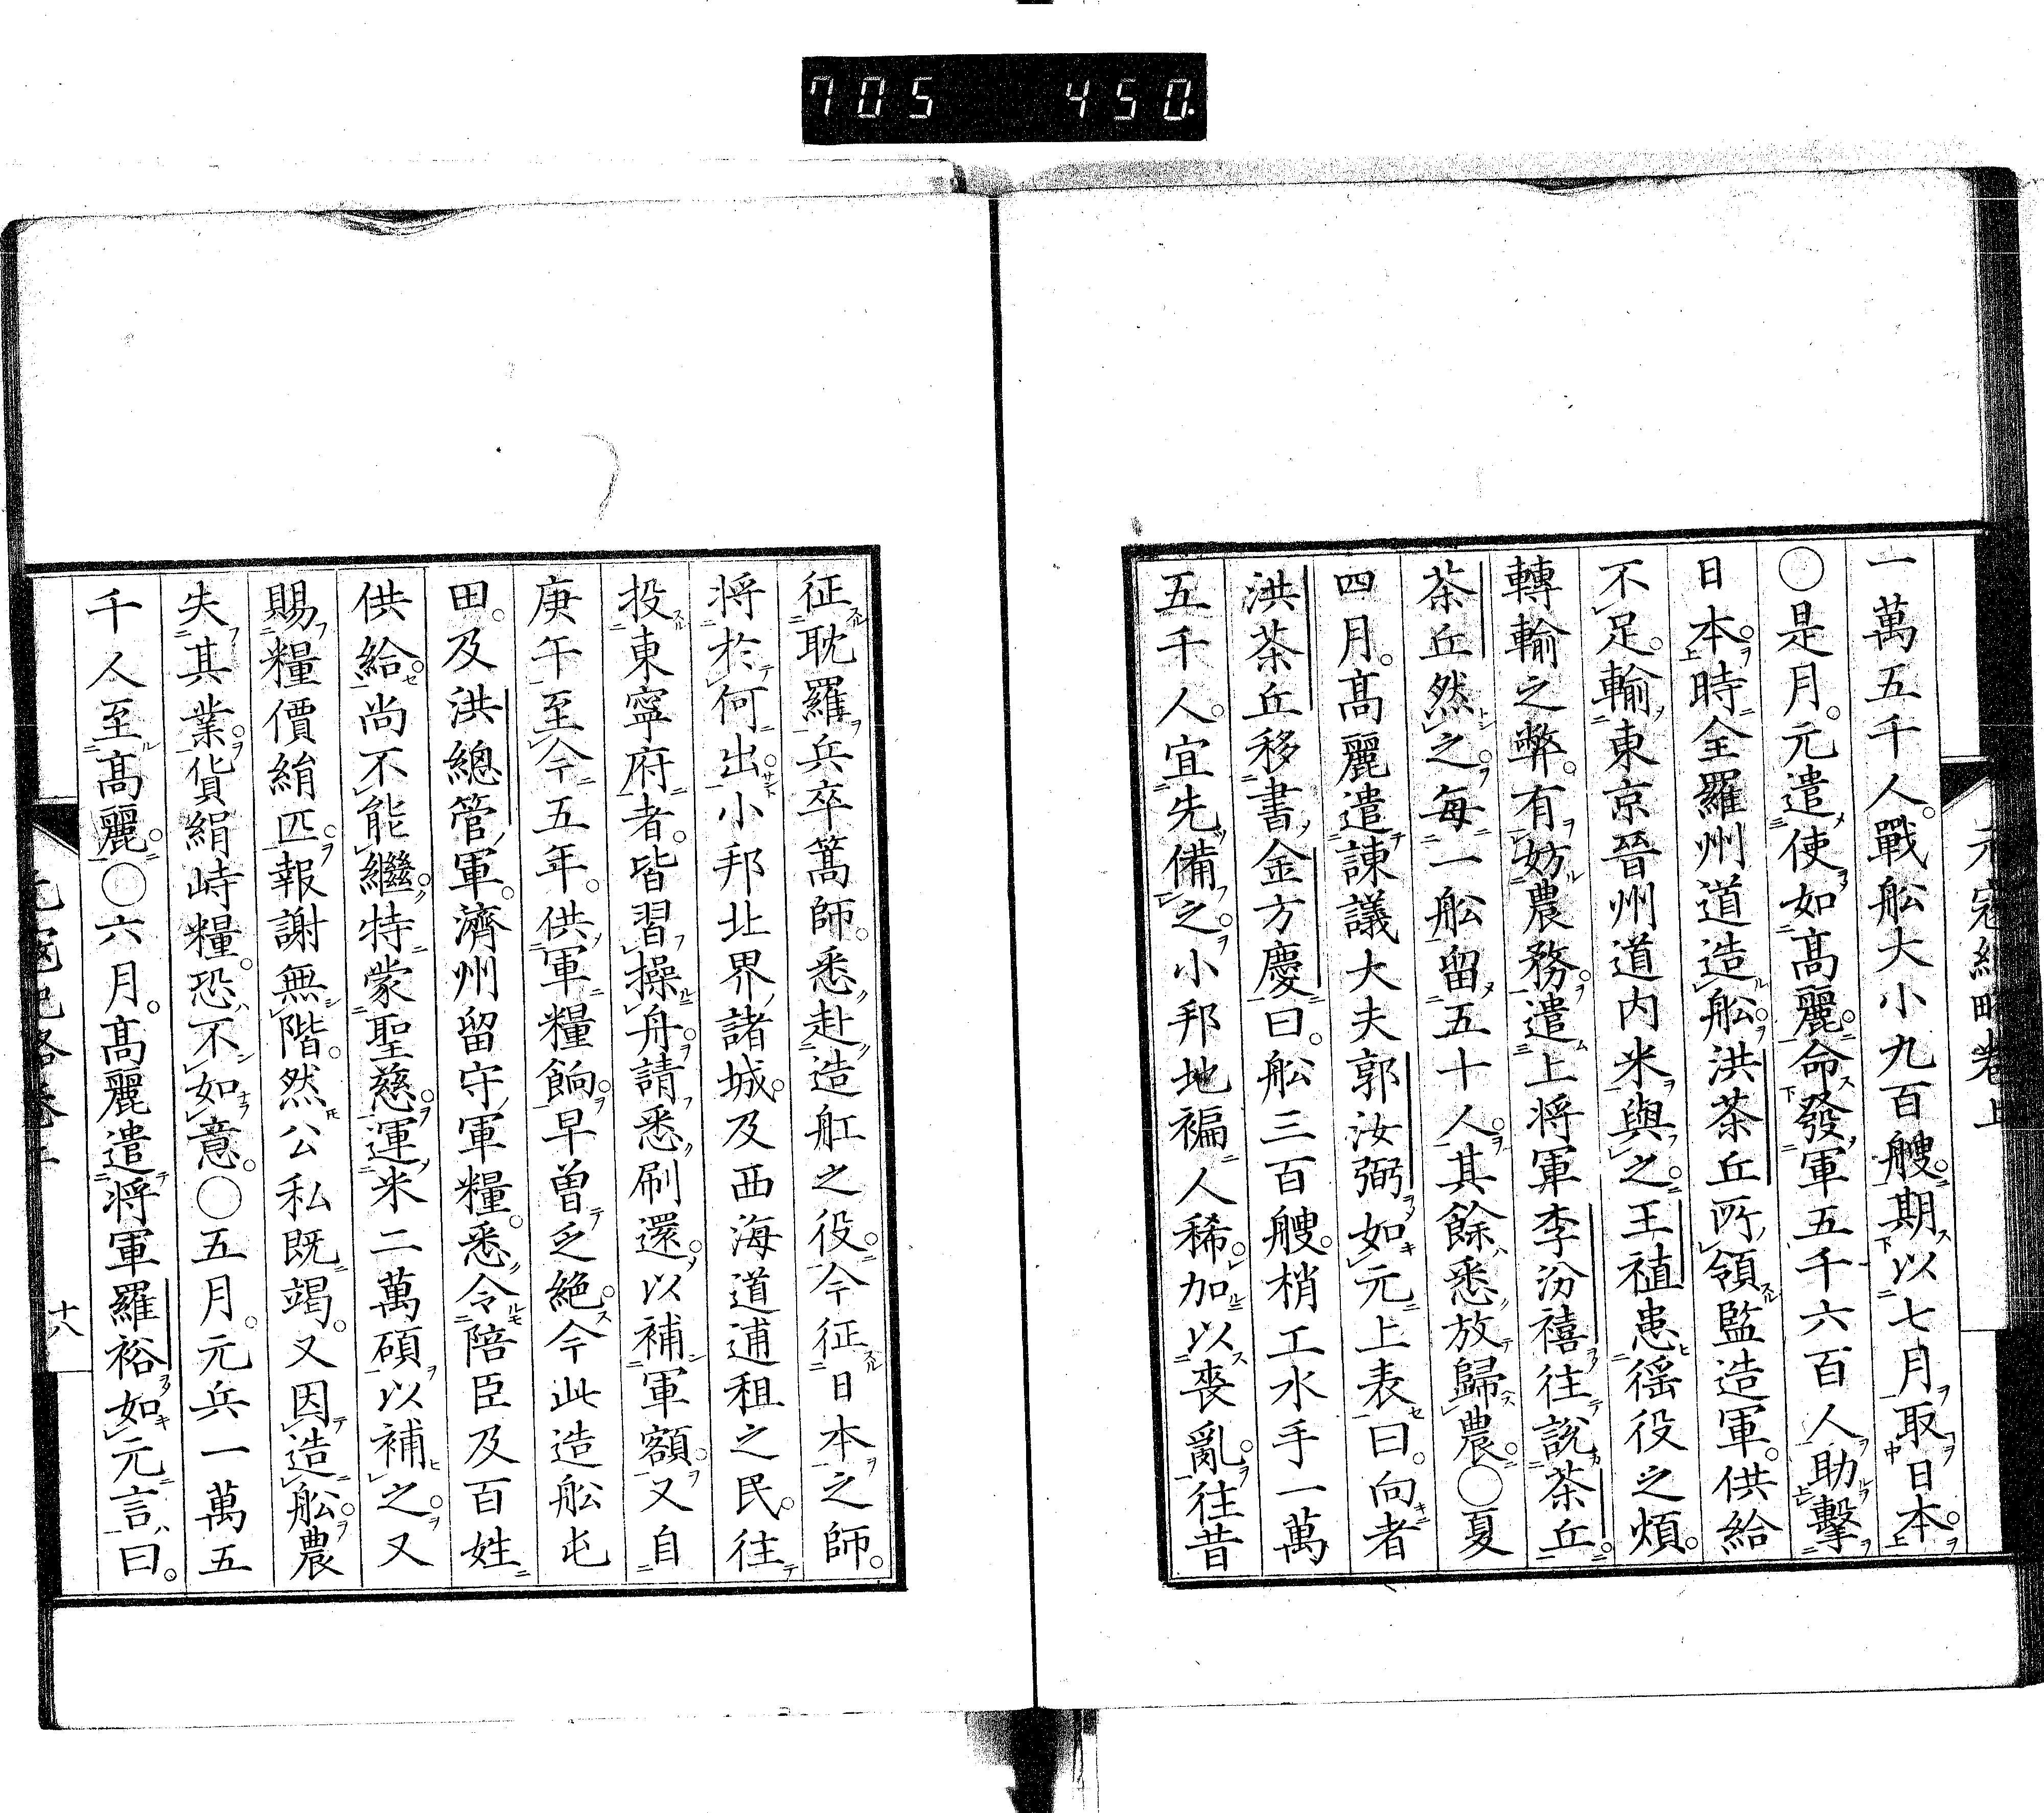 705 450
一萬五千人。戰舩大小九百艘。期以七月取日本。
○是月。元遣使如高麗。命發軍五千六百人助擊
日本。時全羅州道造舩。洪茶丘所領監造軍。供給
不足。輸東京晉州道内米與之。王禃患徭役之煩。
轉輸之弊。有妨農務。遣上将軍李汾禧往說茶丘。
茶丘然之。每一舩留五十人。其餘悉放歸農。○夏
四月。高麗遣諫議大夫郭汝弼如元上表曰。向者
洪茶丘移書金方慶曰。舩三百艘。梢工水手一萬
五千人。宜先備之。小邦地褊人稀。加以喪亂。往昔
征耽羅兵卒篙師。悉赴造舡之役。今征日本之師。
将於何出。小邦北界諸城。及西海道逋租之民。往
投東寧府者。皆習操舟。請悉刷還。以補軍額。又自
庚午至今五年。供軍糧餉。早曽乏絶。今此造舩屯
田。及洪總管軍。濟州留守軍糧。悉令陪臣及百姓
供給。尚不能繼。特蒙聖慈。運米二萬碩以補之。又
賜糧價絹匹。報謝無階。然公私既竭。又因造舩。農
失其業。貨絹峙糧。恐不如意。○五月。元兵一萬五
千人至高麗。○六月。高麗遣将軍羅裕如元言曰。
十八